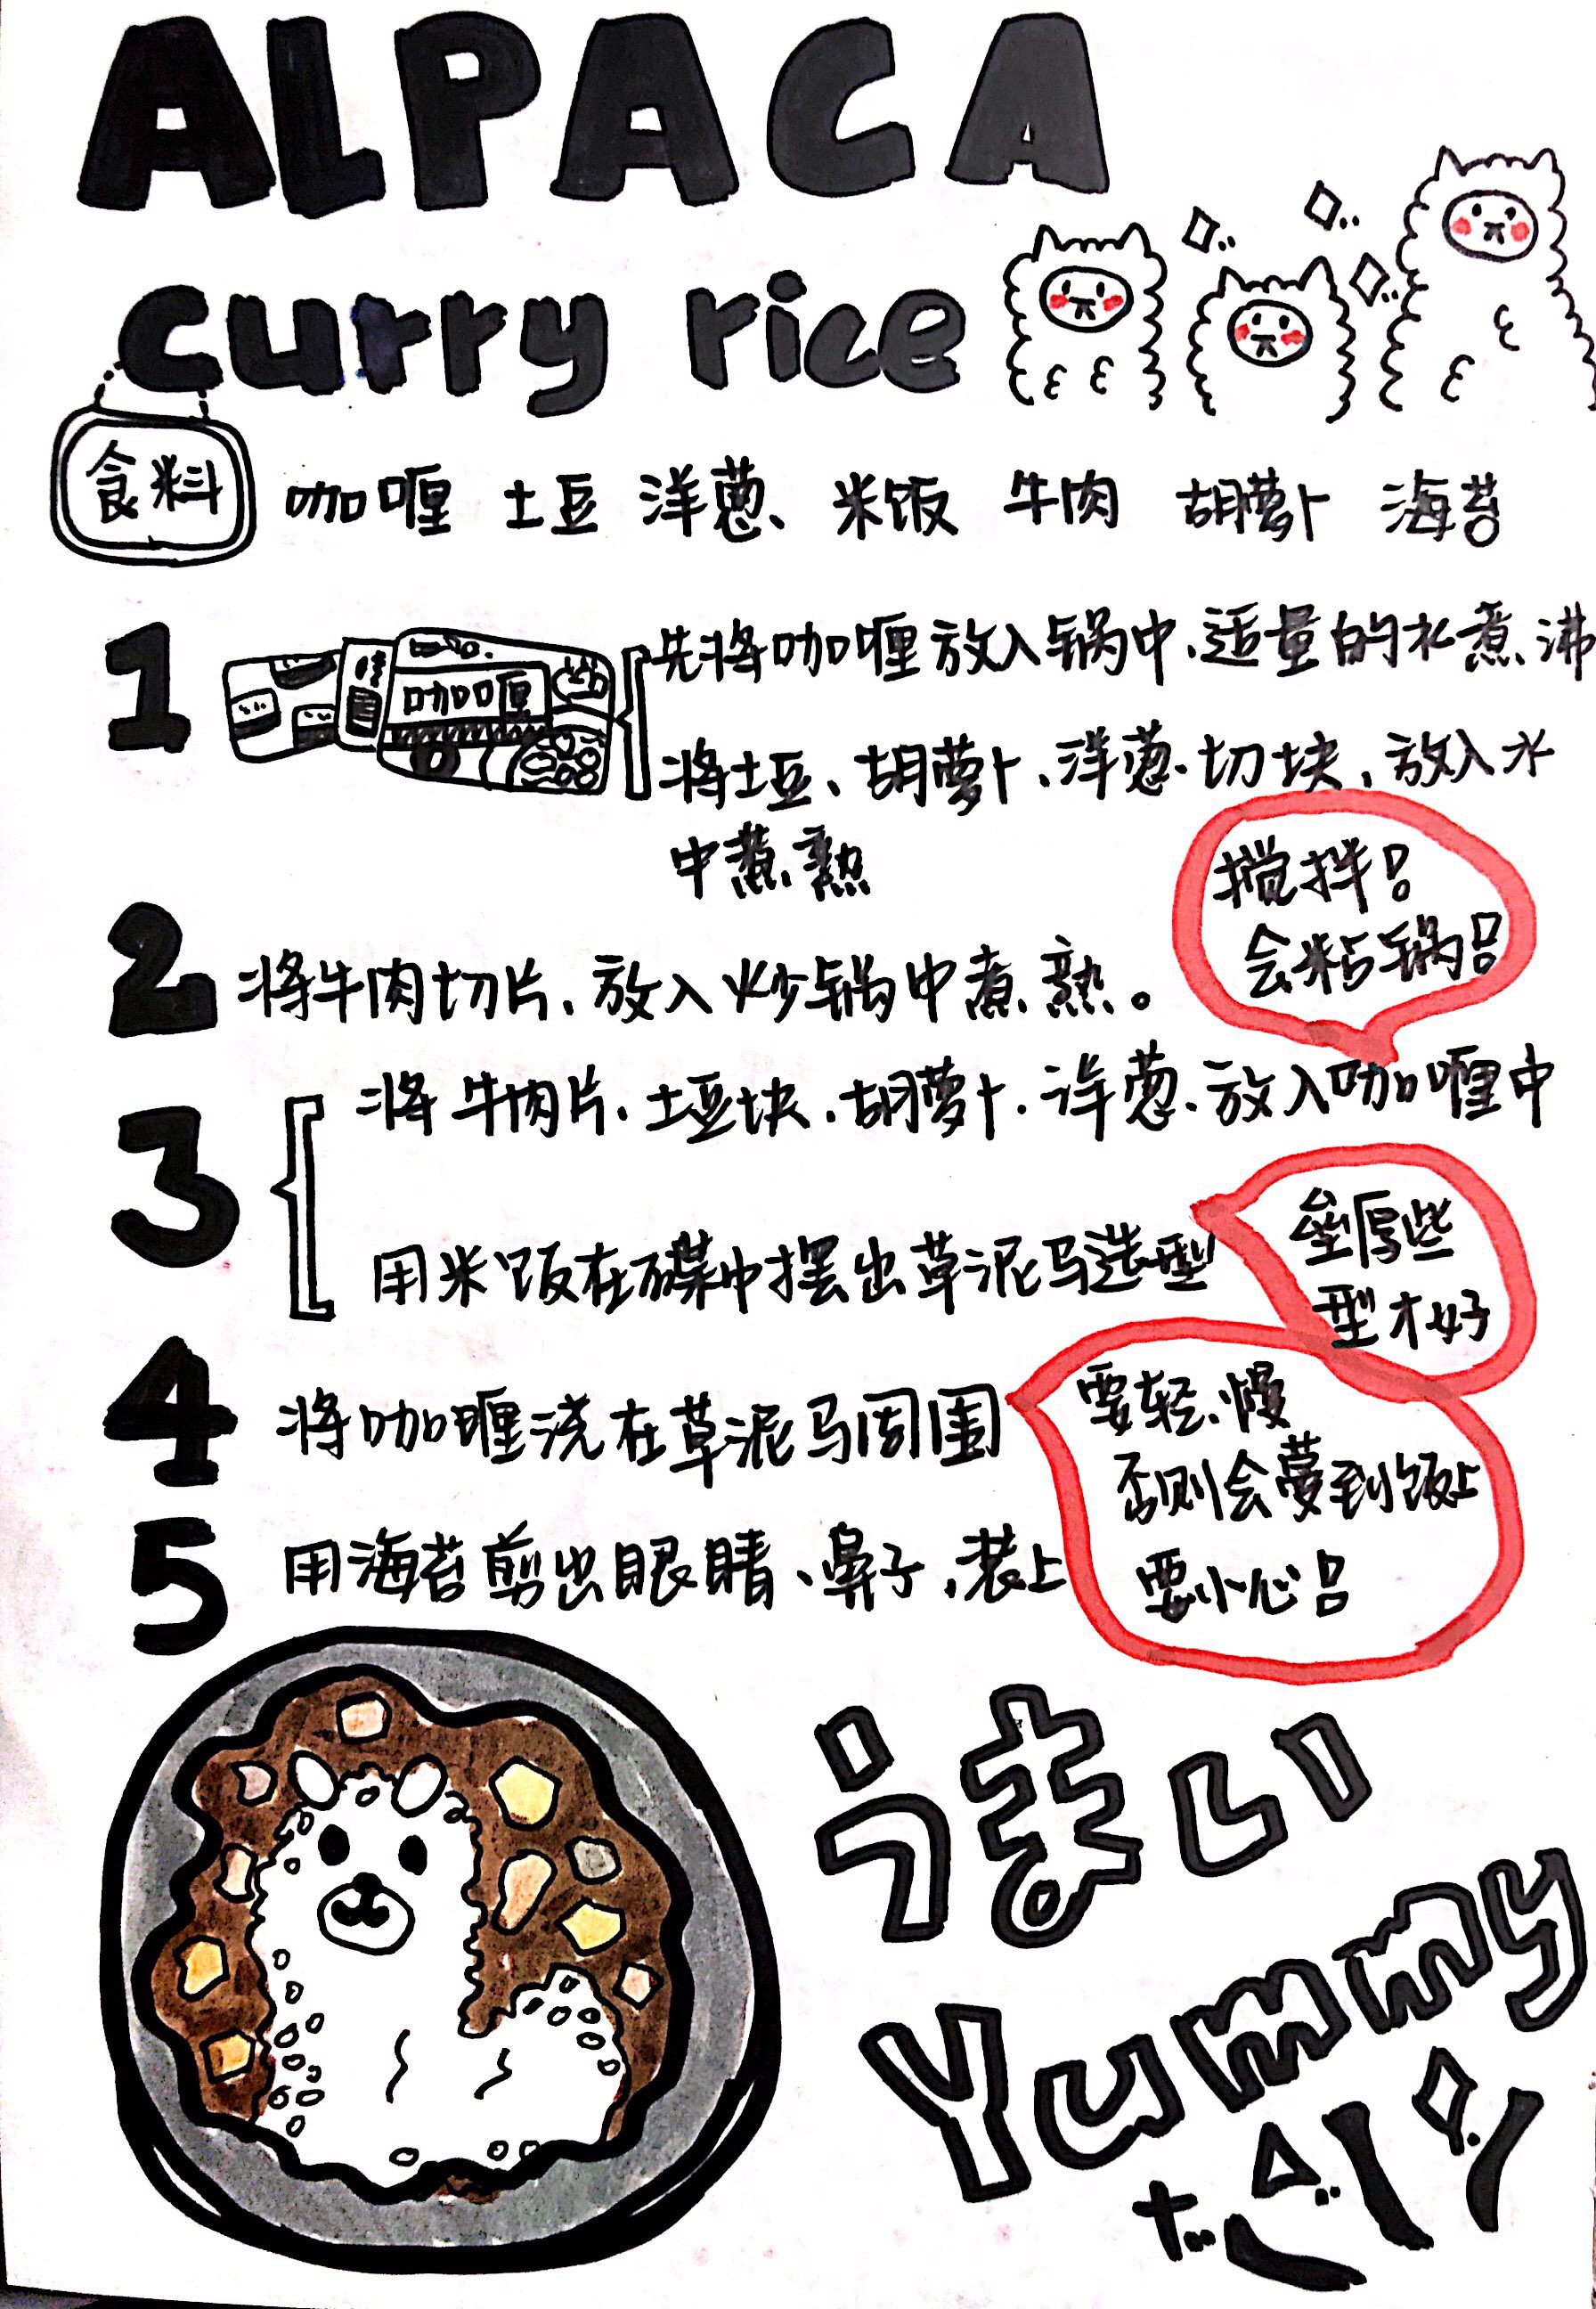 ALPACA
curry rice
食料 咖喱 土豆 洋葱、 米饭 牛肉 胡萝卜 海苔
1 咖喱 先将咖喱放入锅中、适量的水煮沸
将土豆、胡萝卜、洋葱、切块、放入水
中煮熟
搅拌!
会粘锅!
2 将牛肉切片、放入炒锅中煮熟。
3 将牛肉片、土豆块、胡萝卜、洋葱、放入咖喱中
用米饭在碟中摆出草泥马造型
垒厚些
型才好
4 将咖喱浇在草泥马周围
要轻、慢
否则会蔓到饭上
要小心!
5 用海苔剪出眼睛、鼻子、装上
うまい
Yummy